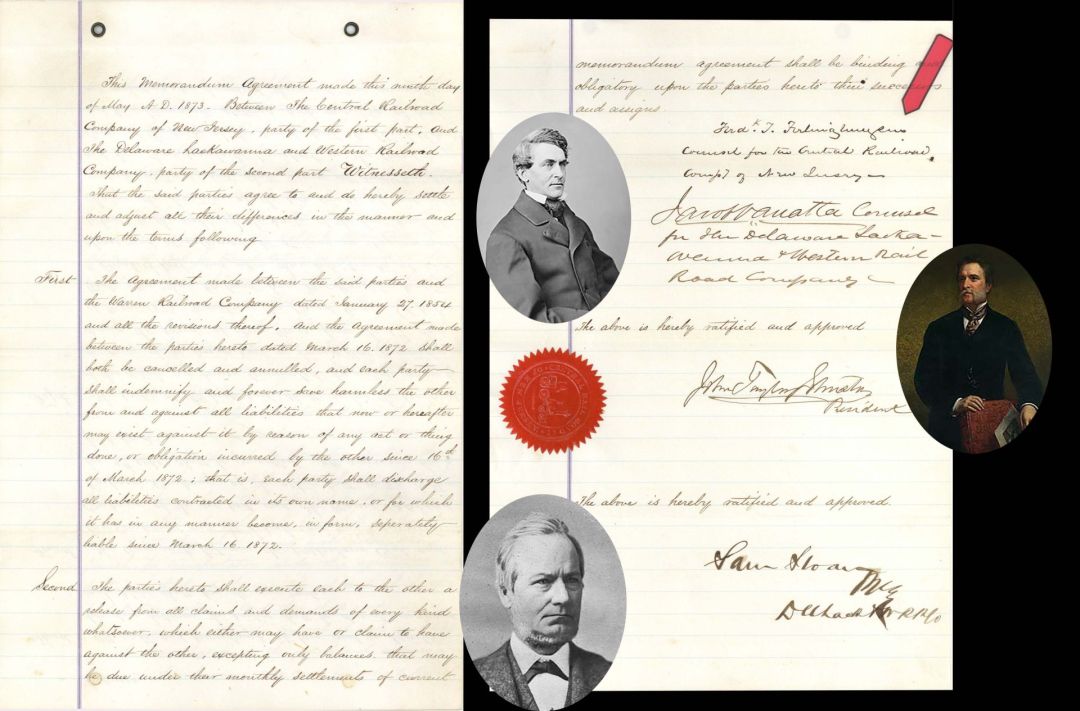 This Memorandum Agreement made this ninth day
of May A.D. 1873. Between The Central Railroad
Company of New Jersey, party of the first part, and
The Delaware Lackawanna and Western Railroad
Company, party of the second part Witnesseth.
That the said parties agree to and do hereby settle
and adjust all their differences in the manner and
upon the terms following
First The Agreement made between the said parties and
the Warren Railroad Company dated January 27. 1854
and all the revisions thereof, and the Agreement made
between the parties hereto dated March 16. 1872 shall
both be cancelled and annulled, and each party
shall indemnify and forever save harmless the other
from and against all liabilities that now or hereafter
may exist against it by reason of any act or thing
done, or obligation incurred by the other since 16th
of March 1872; that is, each party shall discharge
all liabilities contracted in its own name, or for which
it has in any manner become, in form, seperately
liable since March 16. 1872.
Second The parties hereto shall execute each to the other a
release from all claims and demands of every kind
whatsoever, which either may have or claim to have
against the other, excepting only balances that may
be due under their monthly settlements of current
memorandum agreement shall be binding and
obligatory upon the parties hereto their successors
and assigns
Fredk. T. Frelinghuysen
Counsel for the Central Railroad
Compy of New Jersey
Jacob Vanatta Counsel
for the Delaware Lacka-
wanna & Western Rail
Road Company
The above is hereby ratified and approved
John Taylor Johnston
President
The above is hereby ratified and approved.
Sam Sloan